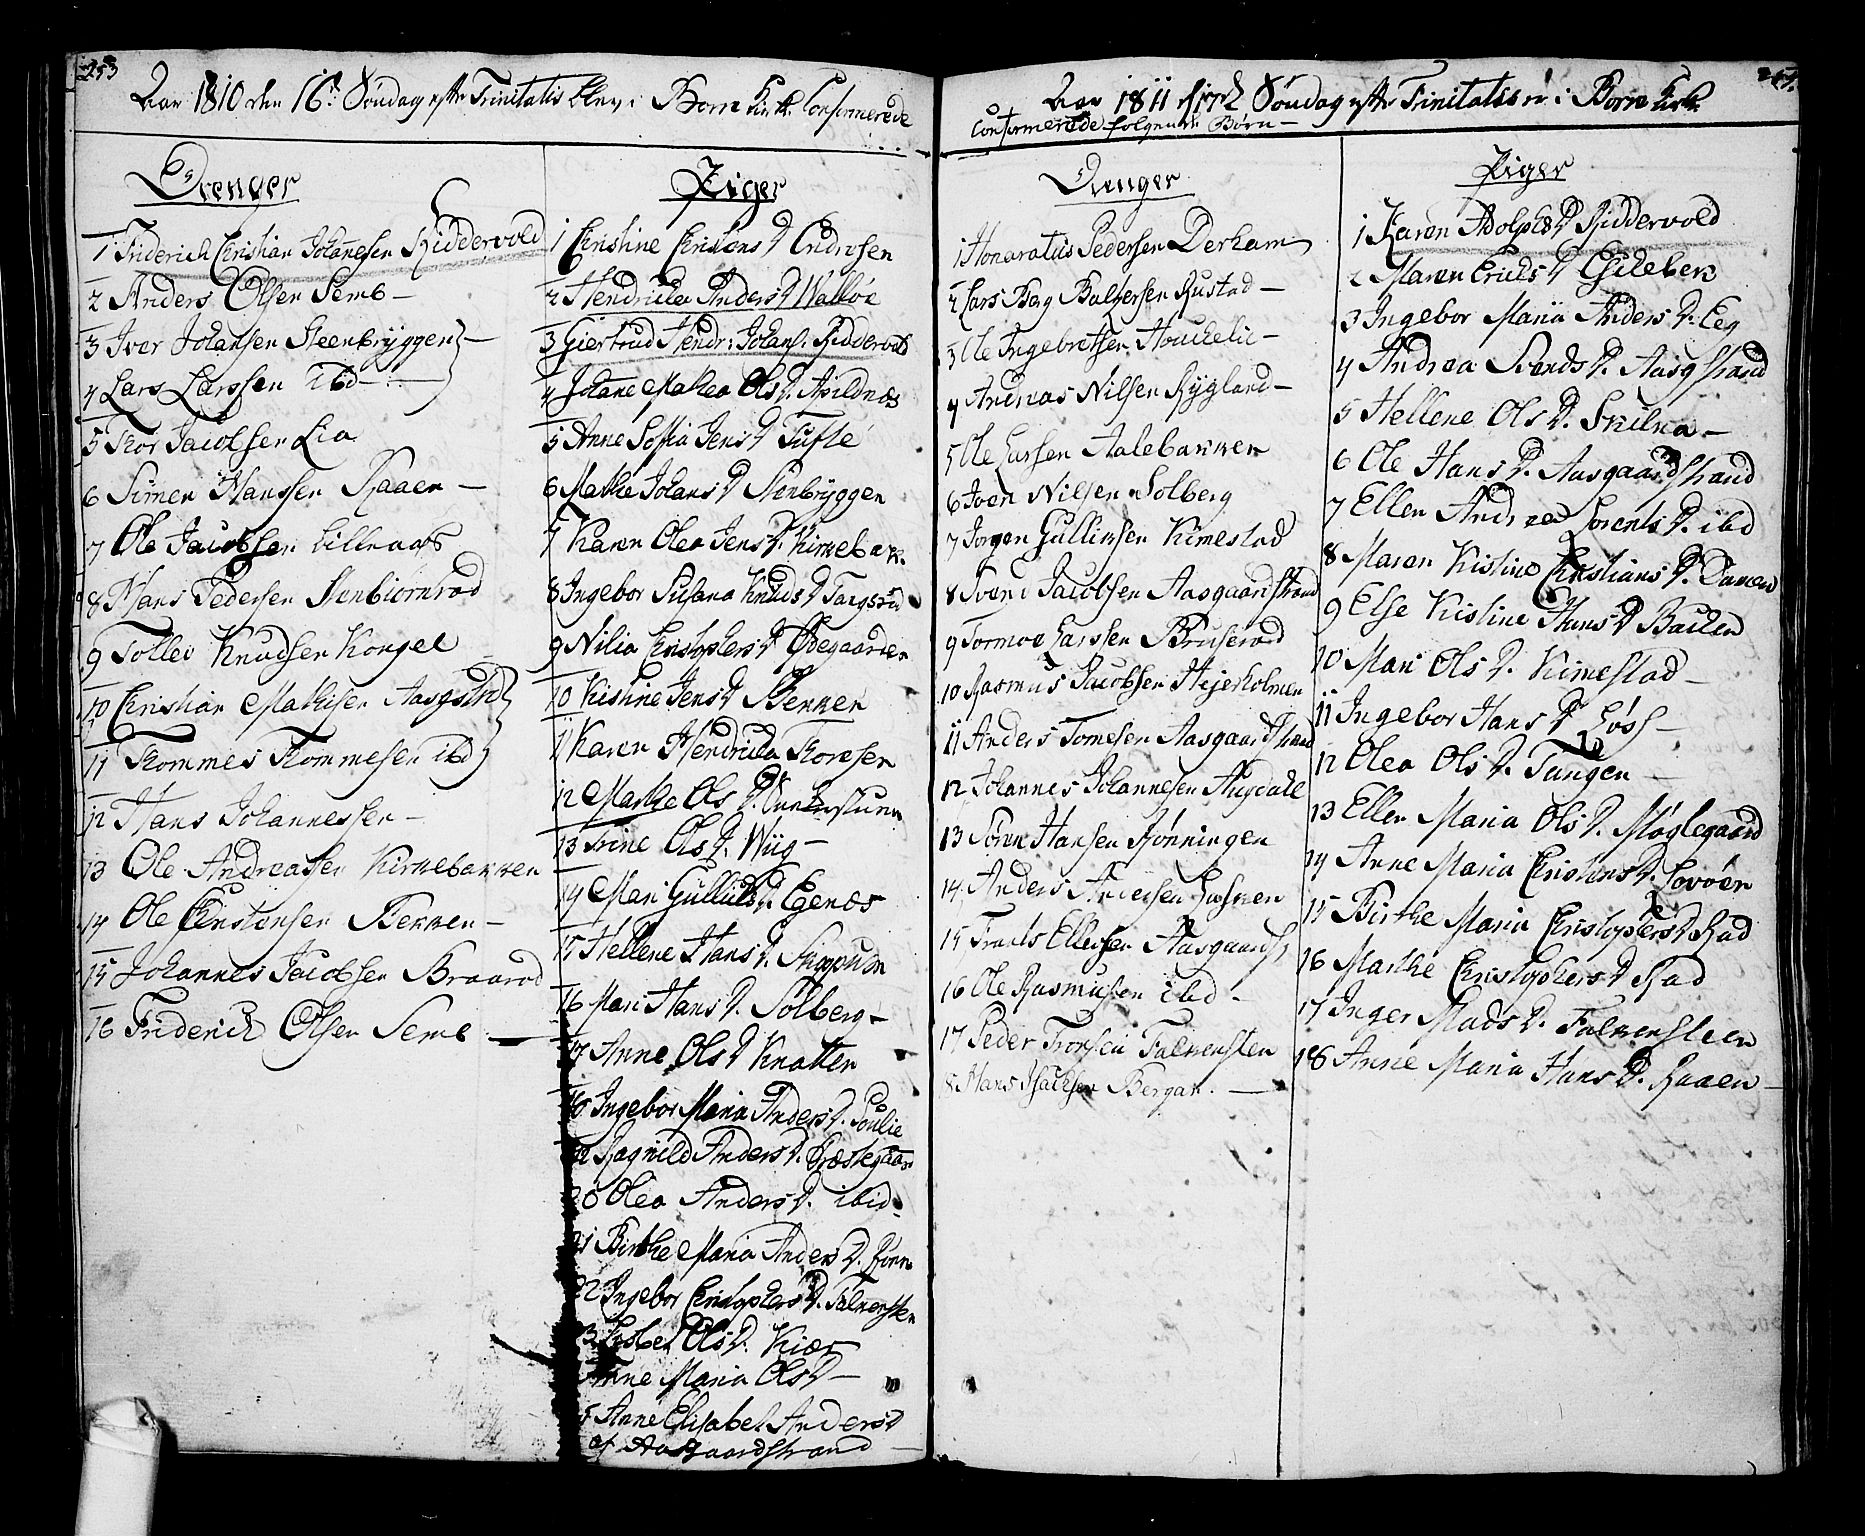 253
Aar 1810 den 16de Søndag efter Trinitatis blev i Borre Kirke Confirmerede
Drenger
1 Friderich Christian Johannesen Riddervold
2 Anders Olsen Semb —
3 Iver Johansen Steenbryggen —
4 Lars Larssen ibd —
5 Thor Jacobsen Lia
6 Simen Hanssen Raaen —
7 Ole Jacobsen Lilleaas
8 Hans Pedersen Stenbiornrød
9 Tollev Knudsen Kongel
10 Christian Mathisen Aasgstrd
11 Thommes Thommesen ibd
12 Hans Johannessen —
13 Ole Andreassen Kirkebakken
14 Ole Christensen Bekken —
15 Johannes Jacobsen Braarød
16 Friderich Olsen Semb —
Piger
1 Christine Christens D
2 Hendricka Anders D Walløe
3 Giertrud Hendr: Johans. Riddervold
4 Johane Mathea Ols D. Apildnæs
5 Anne Sofia Jens D Tufte
6 Mathea Johans D Stenbryggen
7 Karen Olea Jens D. Kirkebak.
8 Ingebor Susana Knuds D
9 Nilia Christophers D Ødegaarden
10 Kistine Jens D Bekken
11 Karen Hendricka Thoresen
12 Marthe Ols D.
13 Trine Ols D. Wiig —
14 Mari Gullicks D. Egenæs
15 Hellene Hans D.
16 Mari Hans D. Solberg —
17 Anne Ols D Knatten
18 Ingebor Maria Anders D.
19 Ragnild Anders D. Præstegaar
20 Olea Anders D. ibid.
21 Birthe Maria Anders D.
22 Ingebor Christophers D. Falkensten
23 Lisbet Ols D. Kiær
Anne Maria Ols D —
5 Anne Elisabet Anders D
af Aasgaardstrand —
254.
Aar 1811 d 17de Søndag efter Trinitatis er i Borre Kirke
Confirmerede følgende Børn —
Drenger
1 Honoratus Pedersen Derham
2 Lars Berg Baltzersen Rustad —
3 Ole Ingebretsen —
4 Andreas Nilsen Rygland —
5 Ole Larsen Aalebakken
6 Iver Nilsen Solberg
7 Jørgen Gullicksen Kimestad
8 Svend Jacobsen Aasgaardstrand
9 Tormoe Larssen Bruserød
10 Rasmus Jacobsen Hejerholmen
11 Anders Tomesen Aasgaardstrand
12 Johannes Johannesen Augdale
13 Søren Hansen Rønningen
14 Anders Andersen
15 Frants Ellefsen Aasgaards
16 Ole Rasmusen ibd —
17 Peder Tronsen Falkensten
18 Hans Isacksen Bergan. —
Piger
1 Karen Adolphs D Riddervold
2 Maren Erichs D Gileberg
3 Ingebor Maria Anders D. Eeg
4 Andrea Svends D. Aasgstrand
5 Hellene Ols D. Skilna —
6 Ole Hans D. Aasgaardstrand
7 Ellen Andrea Lorents D. ibd
8 Maren Kistine Christians D.
9 Else Kistine Hans D Backen
10 Mari Ols D. Kimestad —
11 Ingebor Hans D —
12 Olea Ols D. Tangen —
13 Ellen Maria Ols D. Møglegaard
14 Anne Maria Christens D. Lovøen
15 Birthe Maria Christophers D. Rød
16 Marthe Christophers D Rød
17 Inger Mads D. Falkensteen
18 Anne Maria Hans D. Raaen —